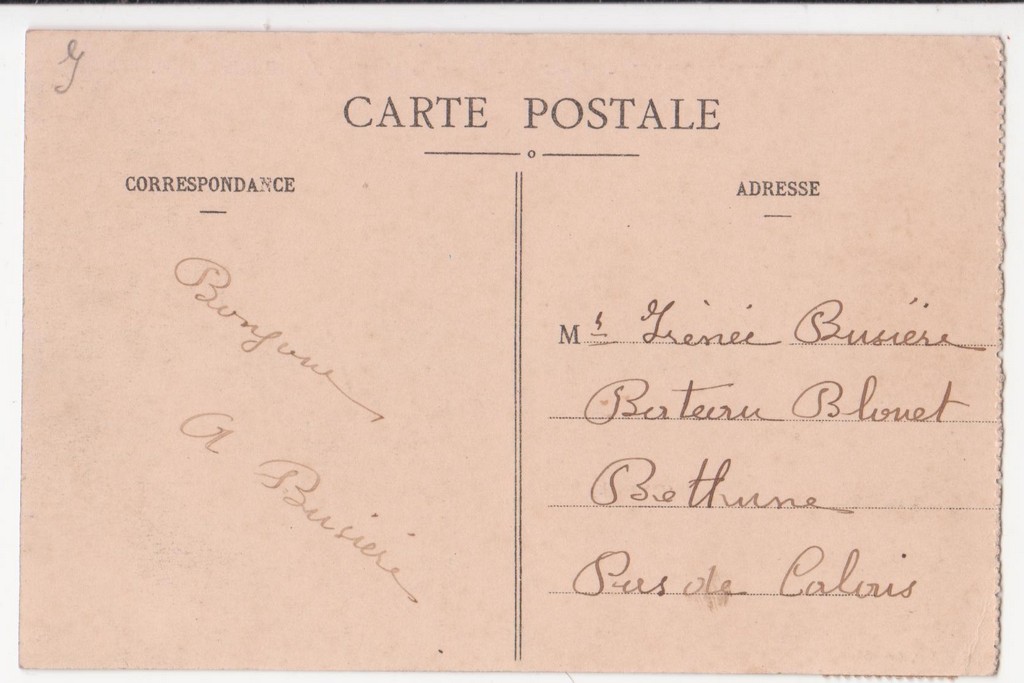 CARTE POSTALE
CORRESPONDANCE
Bonjour
A Busière
ADRESSE
Mr Irénée Busière
Bateau Blouet
Bethune
Pas de Calais